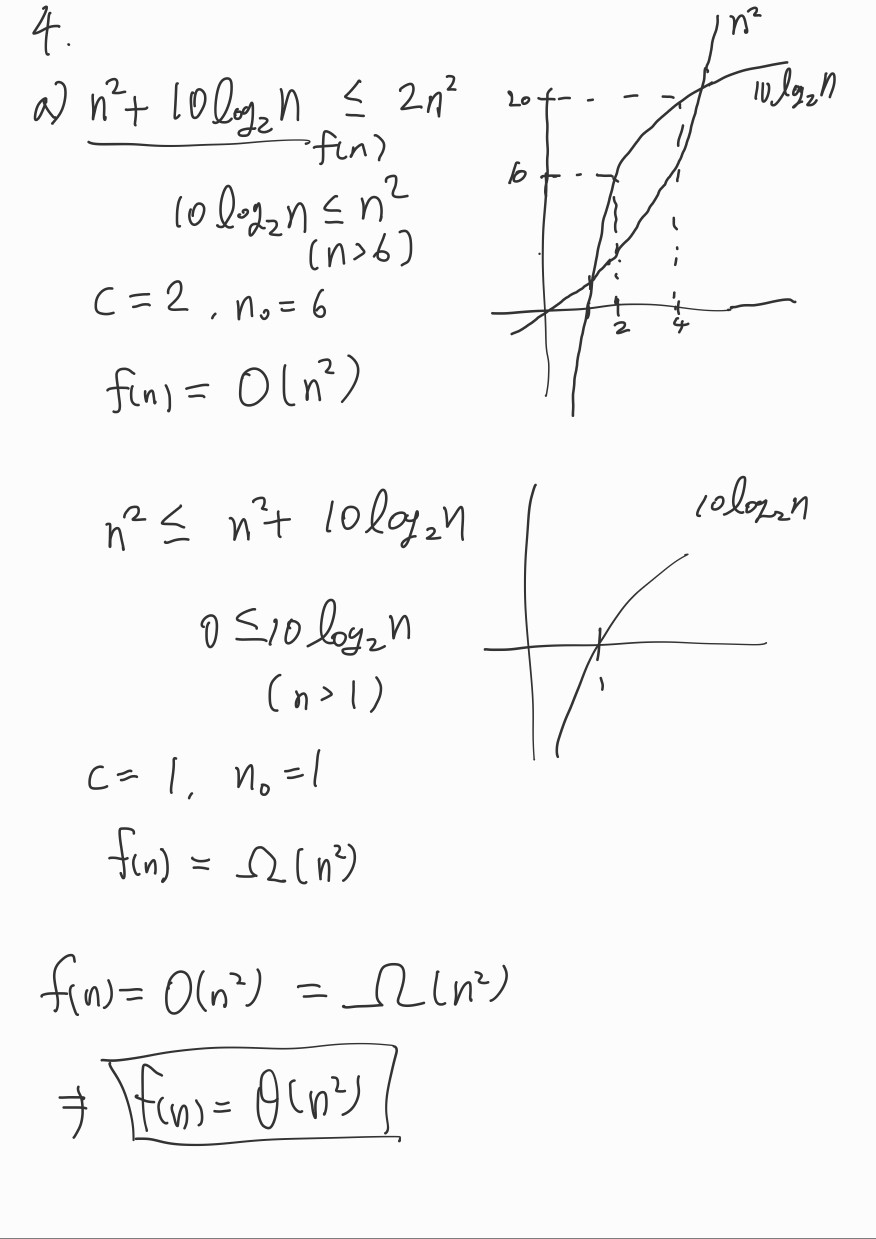 4.
a) n²+ 10log₂n ≤ 2n²
f(n)
10log₂n ≤ n²
(n>6)
c=2, n₀=6
f(n) = O(n²)
n²
10log₂n
20
10
2 4
n² ≤ n²+ 10log₂n
0 ≤10log₂n
(n>1)
c=1, n₀=1
f(n) = Ω(n²)
10log₂n
1
f(n)= O(n²) = Ω(n²)
⇒ f(n)= θ(n²)